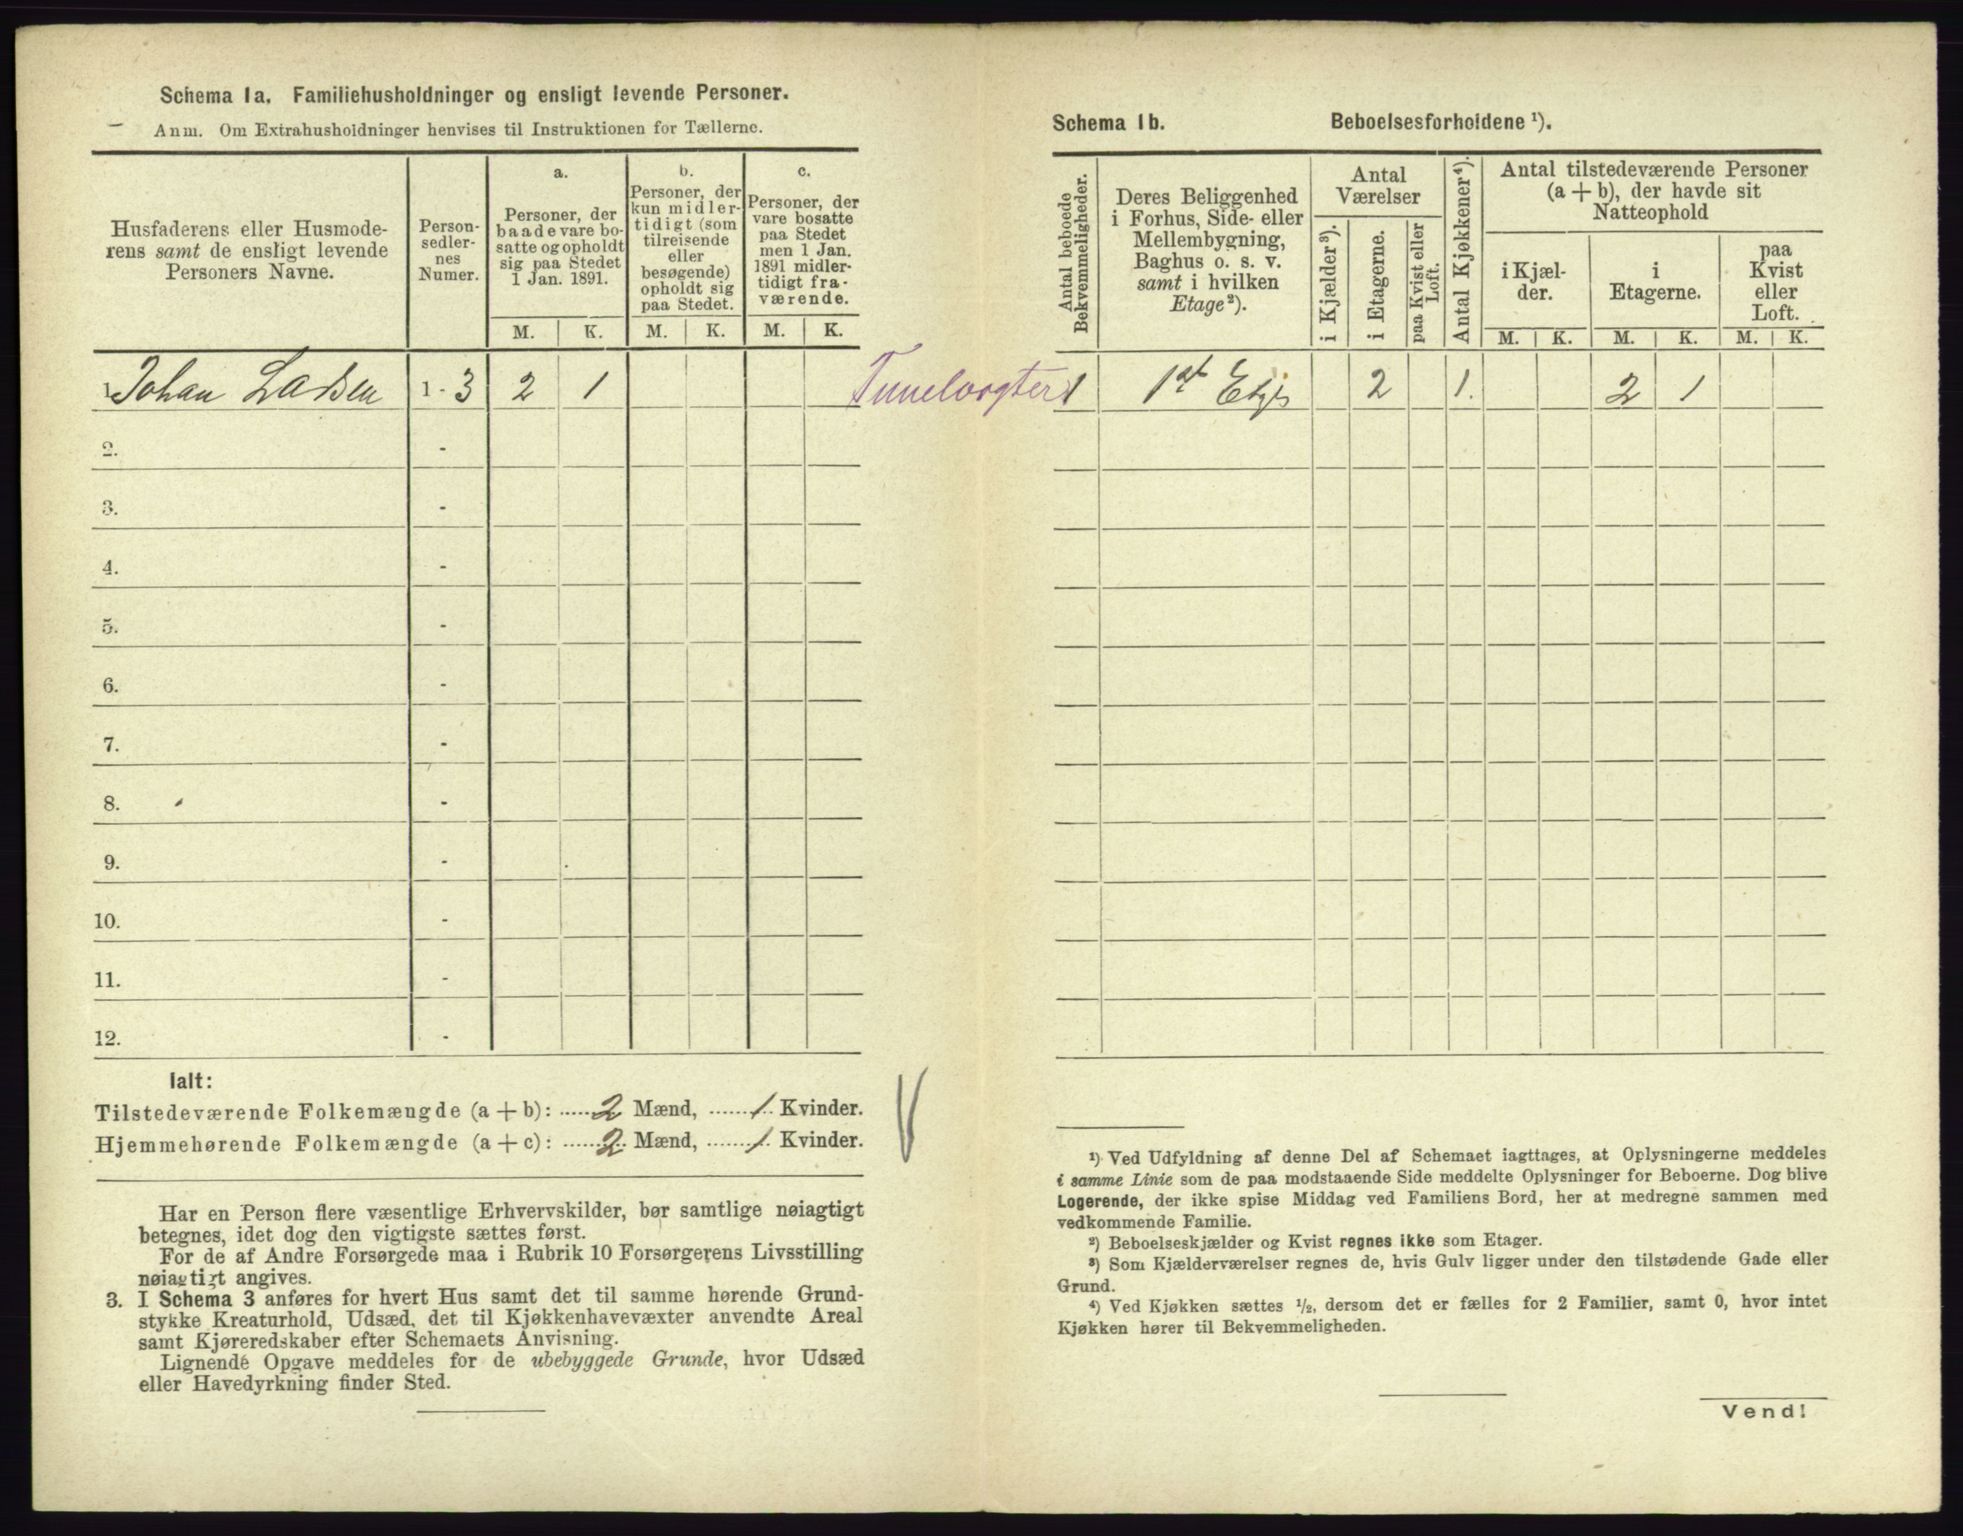 Schema 1a. Familiehusholdninger og ensligt levende Personer.
Anm. Om Extrahusholdninger henvises til Instruktionen for Tællerne.
Husfaderens eller Husmode-
rens samt de ensligt levende
Personers Navne.
Person-
sedler-
nes
Numer.
a.
Personer, der
baade vare bo-
satte og opholdt
sig paa Stedet
1 Jan. 1891.
b.
Personer, der
kun midler-
tidigt (som
tilreisende
eller
besøgende)
opholdt sig
paa Stedet.
c.
Personer, der
vare bosatte
paa Stedet
men 1 Jan.
1891 midler-
tidigt fra-
værende.
M. K. M. K. M. K.
1. Johan Larsen 1 - 3 2 1
2. -
3. -
4. -
5. -
6. -
7. -
8. -
9. -
10. -
11. -
12. -
Ialt:
Tilstedeværende Folkemængde (a + b): 2 Mænd, 1 Kvinder.
Hjemmehørende Folkemængde (a + c): 2 Mænd, 1 Kvinder.
Har en Person flere væsentlige Erhvervskilder, bør samtlige nøiagtigt
betegnes, idet dog den vigtigste sættes først.
For de af Andre Forsørgede maa i Rubrik 10 Forsørgerens Livsstilling
nøiagtigt angives.
3. I Schema 3 anføres for hvert Hus samt det til samme hørende Grund-
stykke Kreaturhold, Udsæd, det til Kjøkkenhavevæxter anvendte Areal
samt Kjøreredskaber efter Schemaets Anvisning.
Lignende Opgave meddeles for de ubebyggede Grunde, hvor Udsæd
eller Havedyrkning finder Sted.
Schema 1b. Beboelsesforholdene ¹).
Antal beboede
Bekvemmeligheder.
Deres Beliggenhed
i Forhus, Side- eller
Mellembygning,
Baghus o. s. v.
samt i hvilken
Etage²).
Antal
Værelser
i Kjælder ³).
i Etagerne.
paa Kvist eller
Loft.
Antal Kjøkkener⁴).
Antal tilstedeværende Personer
(a + b), der havde sit
Natteophold
i Kjæl-
der.
i
Etagerne.
paa
Kvist
eller
Loft.
M. K. M. K. M. K.
Tunelvogter 1 1st Etg 2 1. 2 1
¹) Ved Udfyldning af denne Del af Schemaet iagttages, at Oplysningerne meddeles
i samme Linie som de paa modstaaende Side meddelte Oplysninger for Beboerne. Dog blive
Logerende, der ikke spise Middag ved Familiens Bord, her at medregne sammen med
vedkommende Familie.
²) Beboelseskjælder og Kvist regnes ikke som Etager.
³) Som Kjælderværelser regnes de, hvis Gulv ligger under den tilstødende Gade eller
Grund.
⁴) Ved Kjøkken sættes ½, dersom det er fælles for 2 Familier, samt 0, hvor intet
Kjøkken hører til Bekvemmeligheden.
Vend!